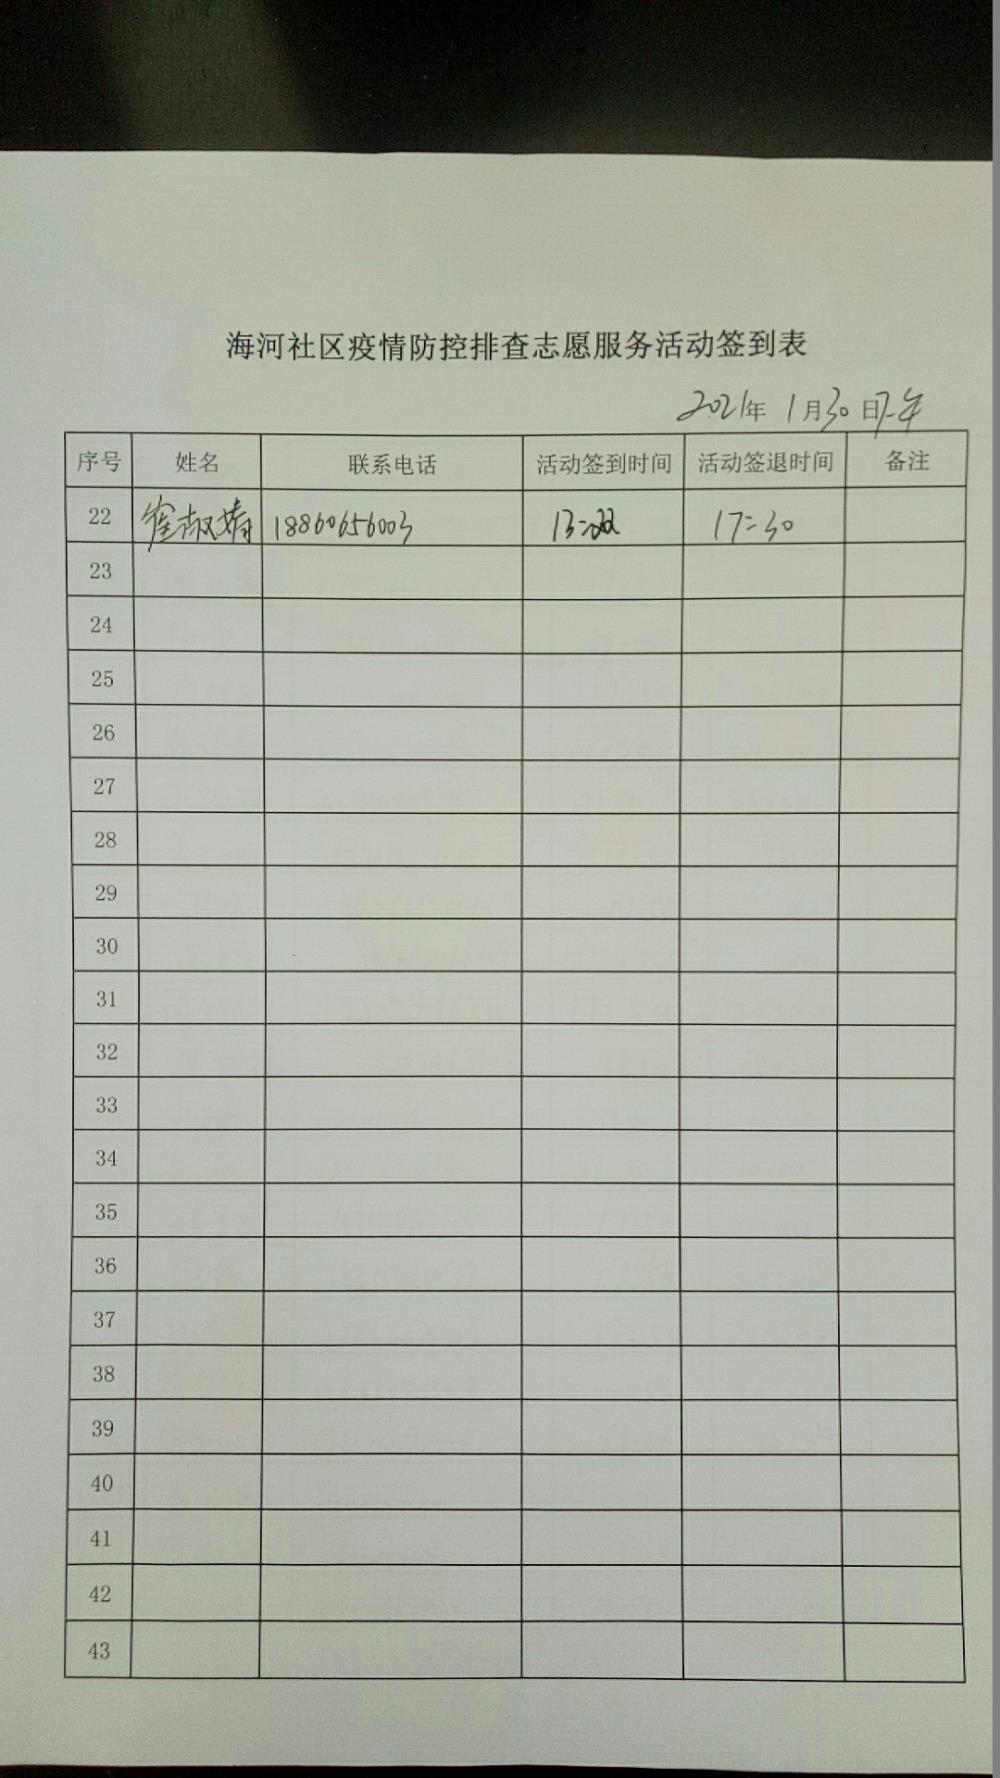 海河社区疫情防控排查志愿服务活动签到表
2021年 1月30日下午
序号 姓名 联系电话 活动签到时间 活动签退时间 备注
22 崔淑婧 18860656003 13: 17:30
23
24
25
26
27
28
29
30
31
32
33
34
35
36
37
38
39
40
41
42
43